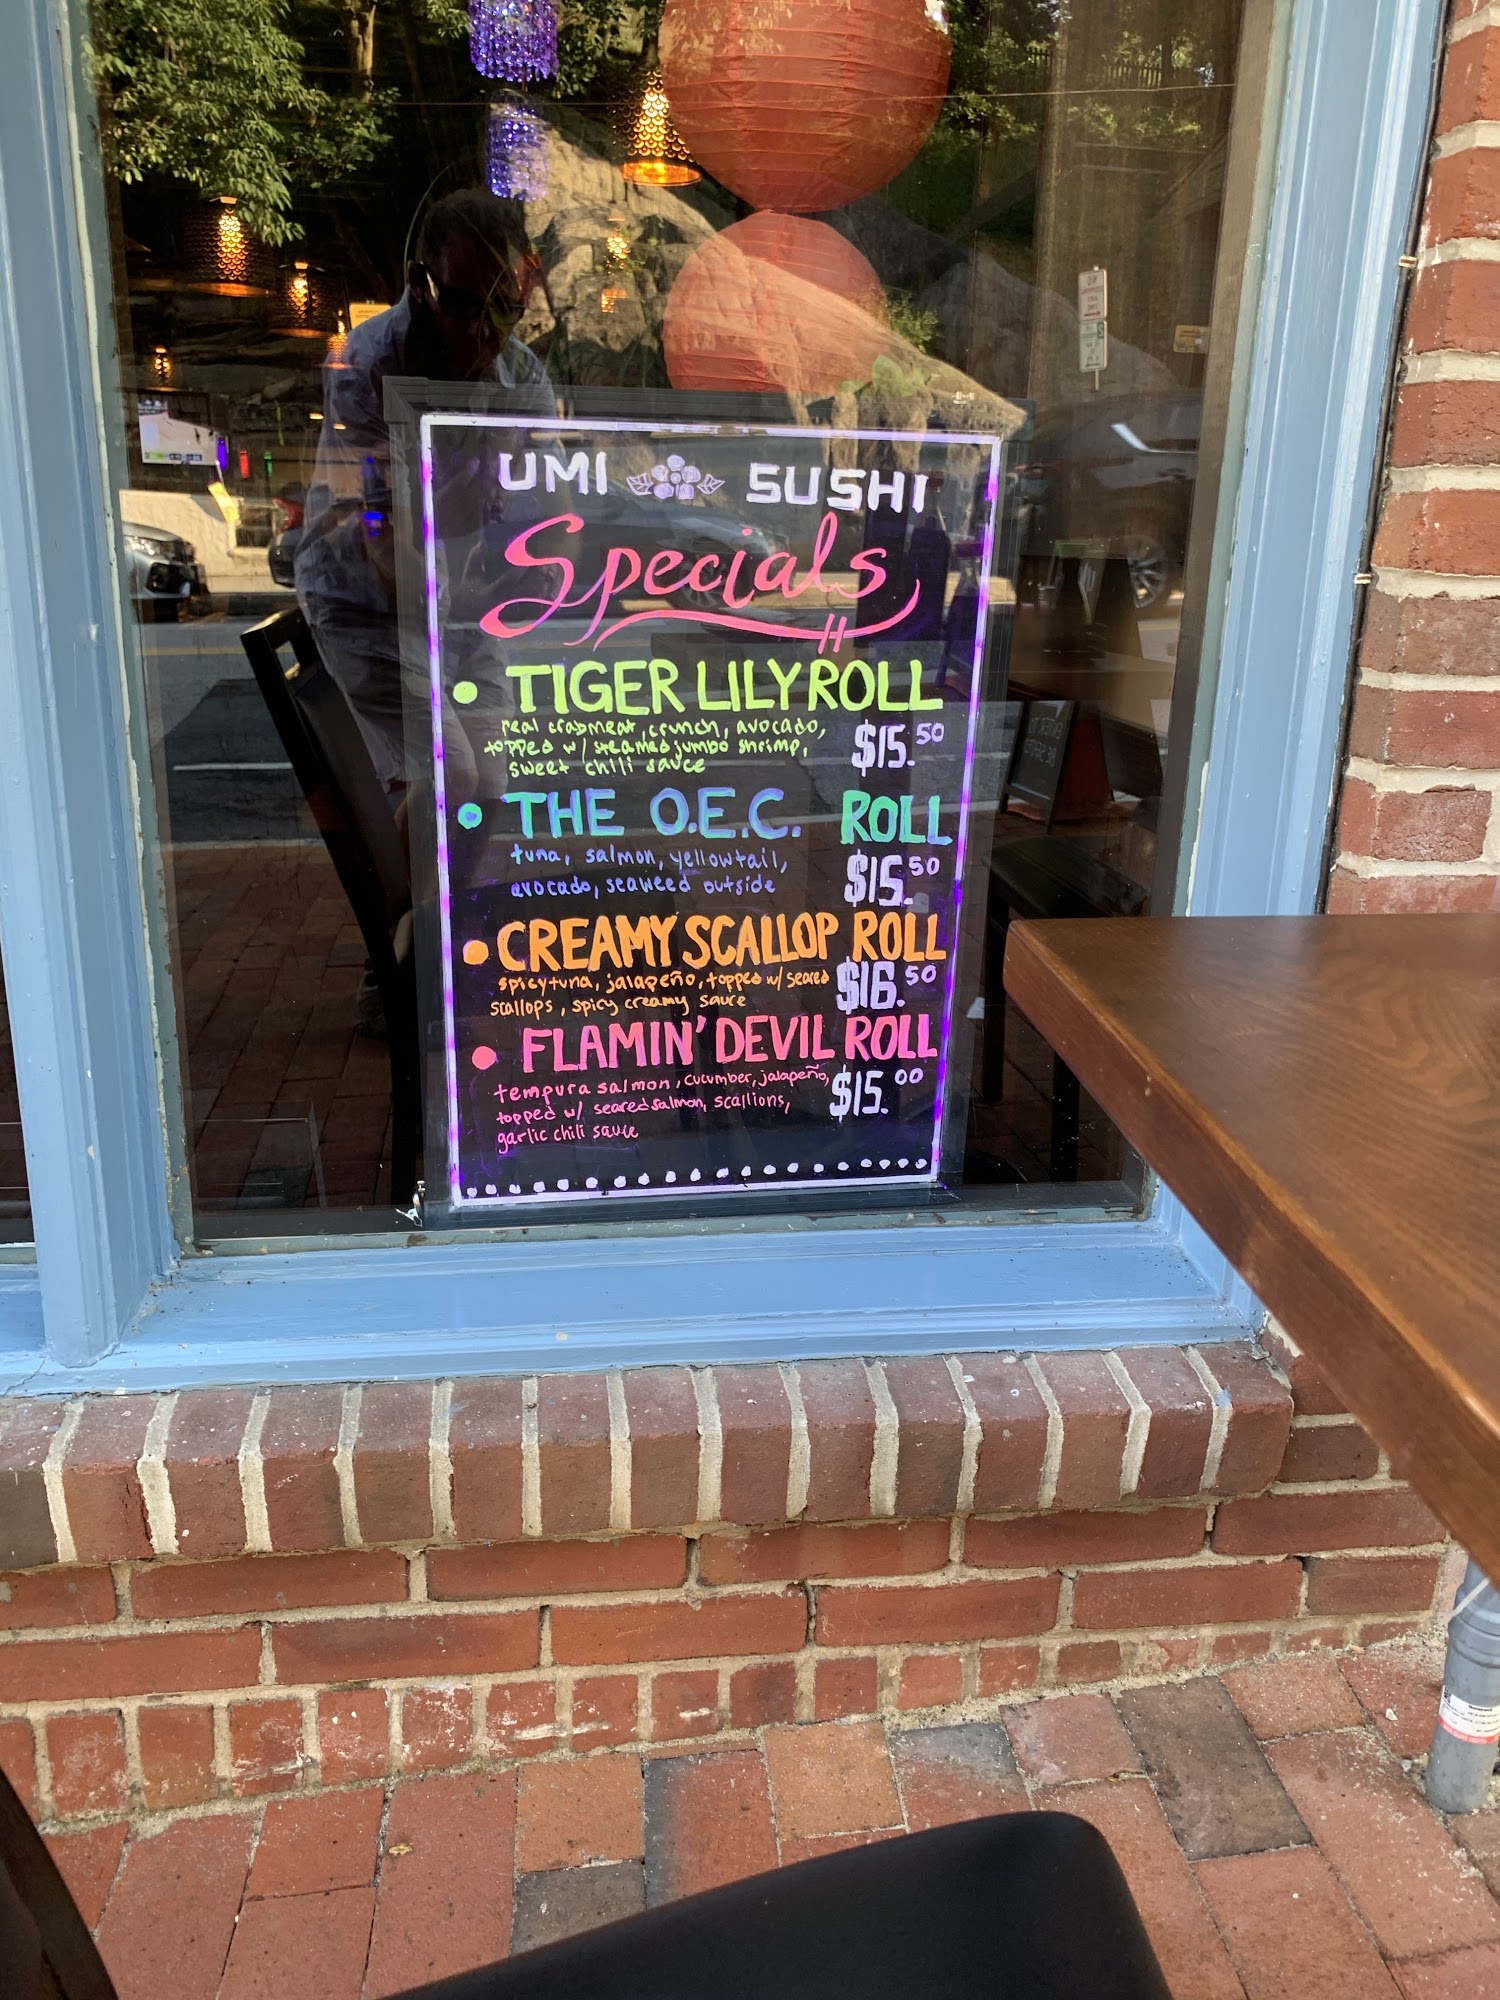 UMI SUSHI
Specials
TIGER LILY ROLL
real crabmeat, crunch, avocado,
topped w/ steamed jumbo shrimp,
sweet chili sauce
$15.50
THE O.E.C. ROLL
tuna, salmon, yellowtail,
avocado, seaweed outside
$15.50
CREAMY SCALLOP ROLL
spicy tuna, jalapeño, topped w/ seared
scallops, spicy creamy sauce
$16.50
FLAMIN' DEVIL ROLL
tempura salmon, cucumber, jalapeño,
topped w/ seared salmon, scallions,
garlic chili sauce
$15.00